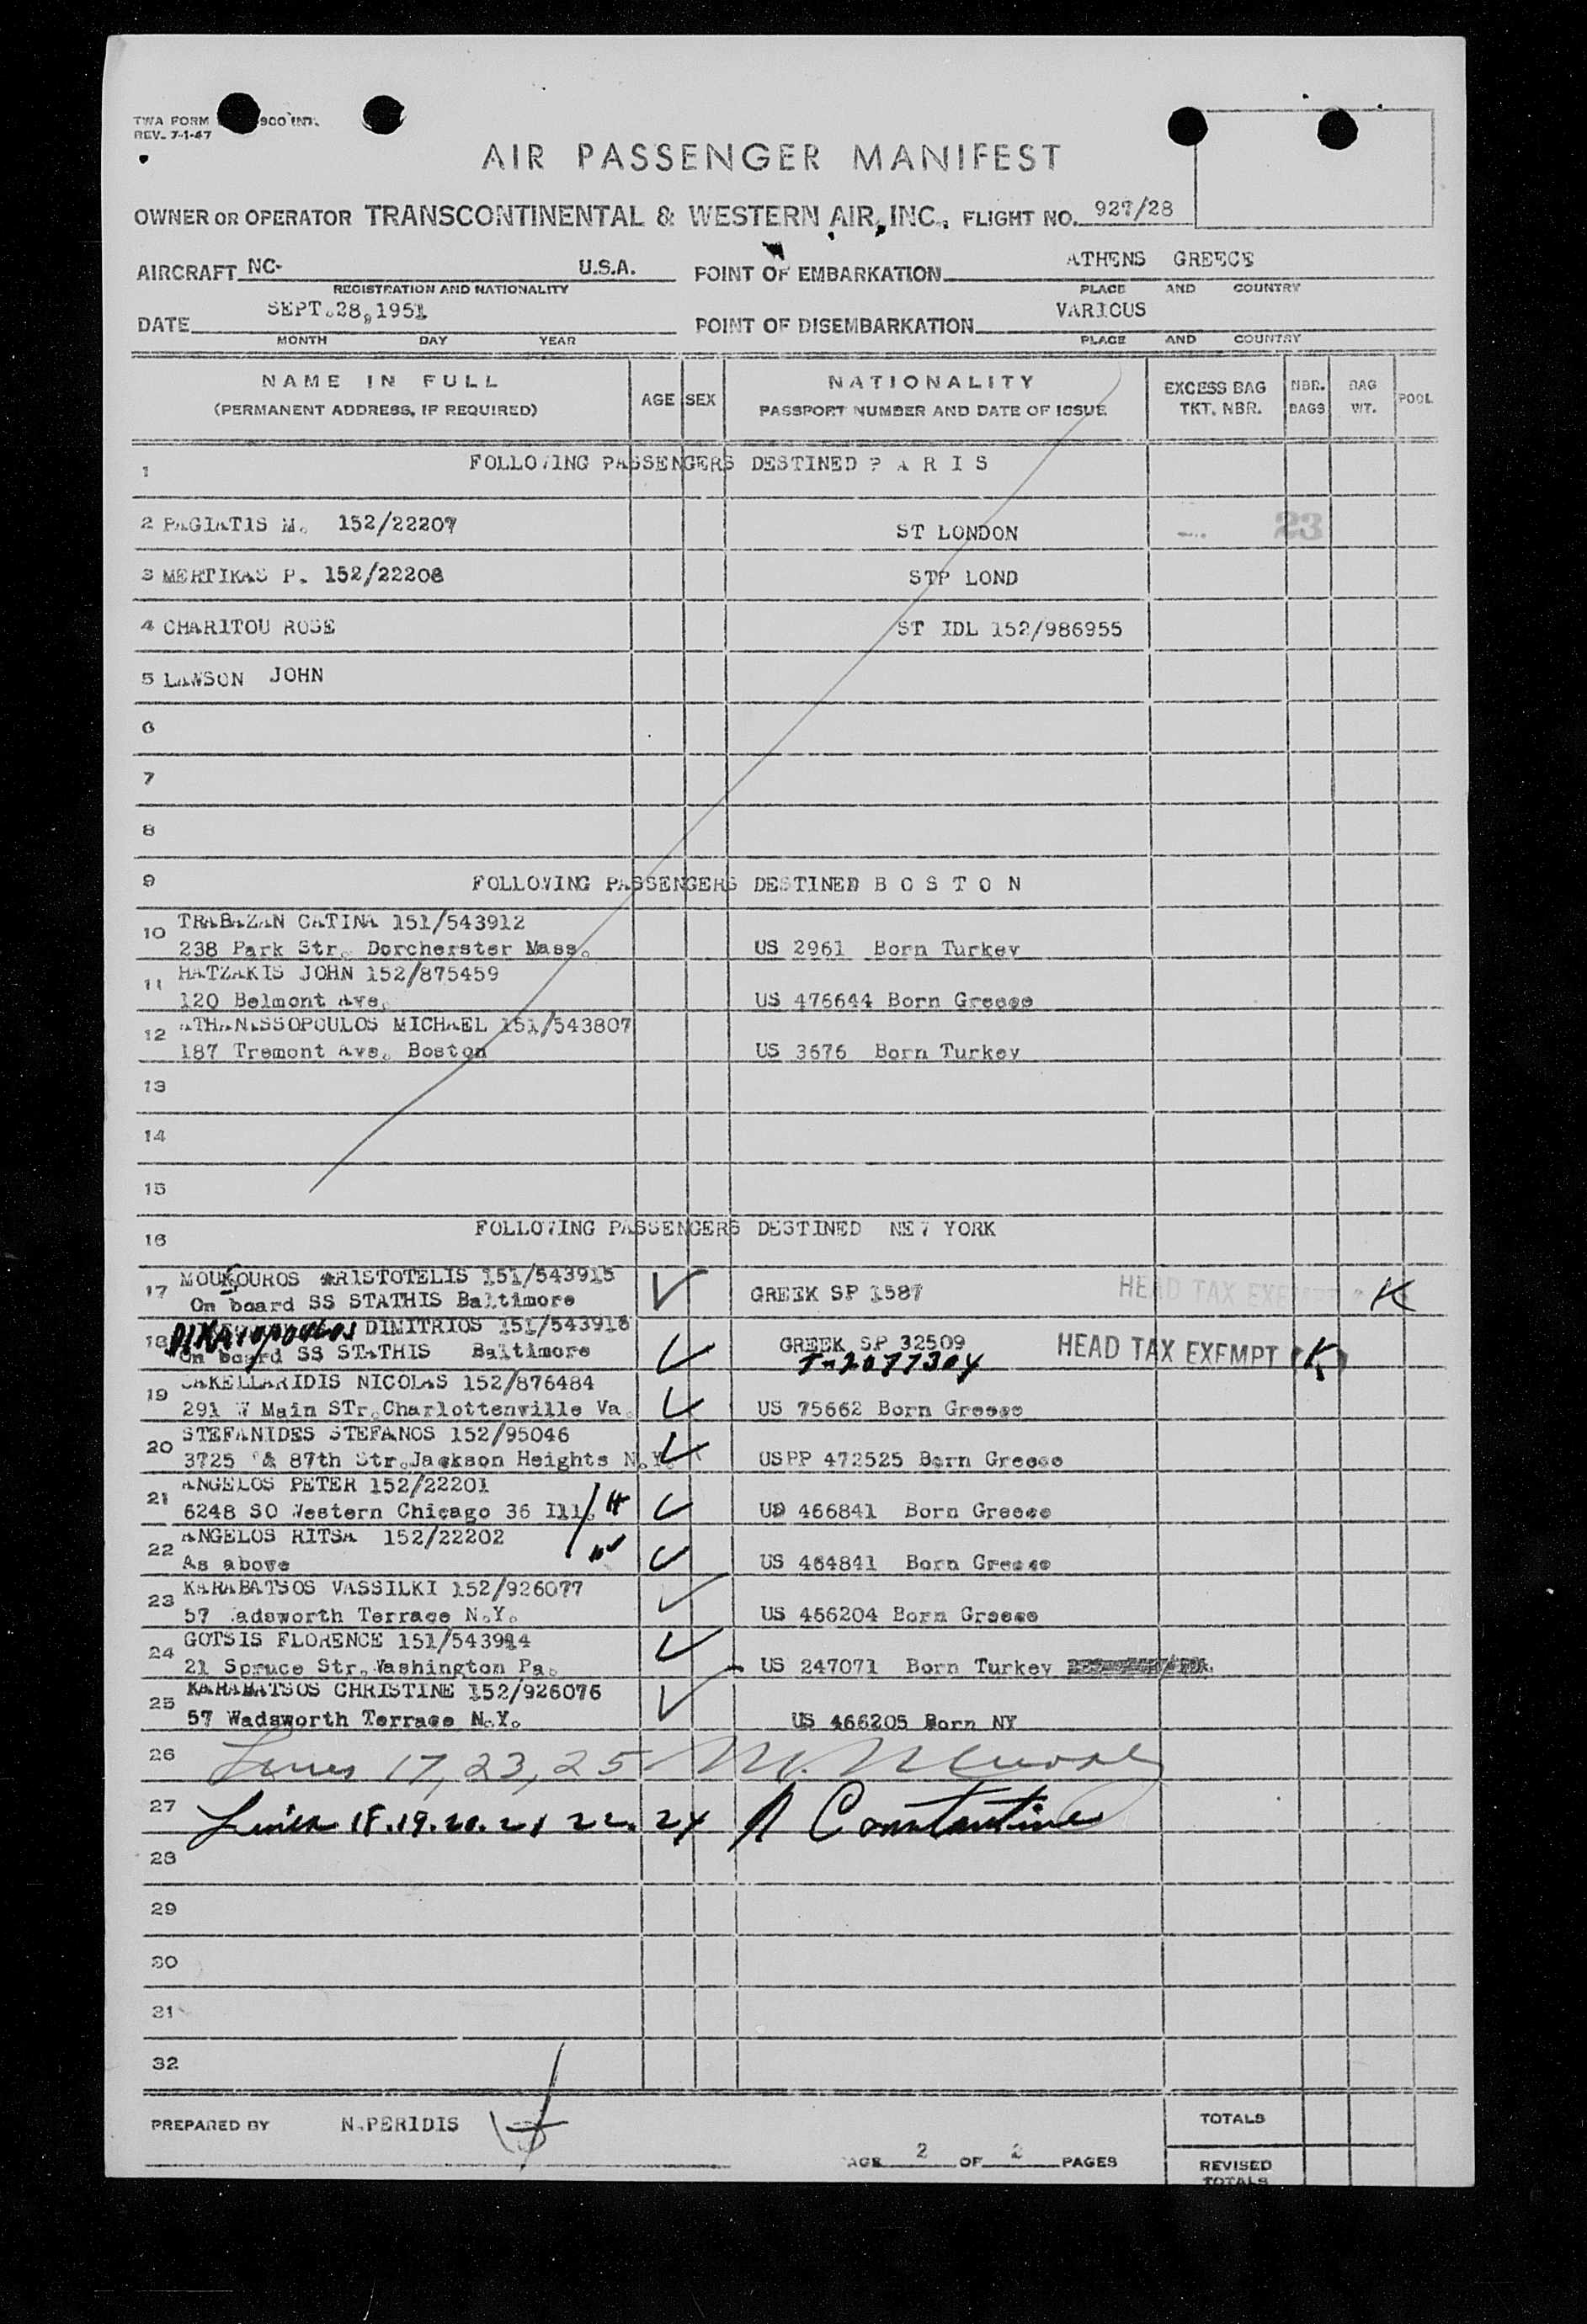 TWA FORM 900 INT.
REV. 7-1-47
AIR PASSENGER MANIFEST
OWNER OR OPERATOR TRANSCONTINENTAL & WESTERN AIR, INC., FLIGHT NO. 927/28
AIRCRAFT NC- U.S.A. POINT OF EMBARKATION ATHENS GREECE
REGISTRATION AND NATIONALITY PLACE AND COUNTRY
DATE SEPT.28,1951 POINT OF DISEMBARKATION VARIOUS
MONTH DAY YEAR PLACE AND COUNTRY
NAME IN FULL AGE SEX NATIONALITY EXCESS BAG NBR. BAG POOL
(PERMANENT ADDRESS, IF REQUIRED) PASSPORT NUMBER AND DATE OF ISSUE TKT. NBR. BAGS WT.
1 FOLLOWING PASSENGERS DESTINED P A R I S
2 PAGIATIS M. 152/22207 ST LONDON 23
3 MERTIKAS P. 152/22208 STP LOND
4 CHARITOU ROSE ST IDL 152/986955
5 LAWSON JOHN
6
7
8
9 FOLLOWING PASSENGERS DESTINED B O S T O N
10 TRABAZAN CATINA 151/543912
238 Park Str. Dorcherster Mass. US 2961 Born Turkey
11 HATZAKIS JOHN 152/875459
120 Belmont Ave. US 476644 Born Greece
12 ATHANASSOPOULOS MICHAEL 151/543807
187 Tremont Ave. Boston US 3676 Born Turkey
13
14
15
16 FOLLOWING PASSENGERS DESTINED NEW YORK
17 MOUKOUROS ARISTOTELIS 151/543915
On board SS STATHIS Baltimore GREEK SP 1587 HEAD TAX EXEMPT K
18 DIKAIOPOULOS DIMITRIOS 151/543916
On board SS STATHIS Baltimore GREEK SP 32509 HEAD TAX EXEMPT (K)
T-2077304
19 SAKELLARIDIS NICOLAS 152/876484
291 W Main STr.Charlottenville Va. US 75662 Born Greece
20 STEFANIDES STEFANOS 152/95046
3725 & 87th Str.Jackson Heights N.Y. USPP 472525 Born Greece
21 ANGELOS PETER 152/22201
6248 SO Western Chicago 36 Ill. H US 466841 Born Greece
22 ANGELOS RITSA 152/22202
As above W US 464841 Born Greece
23 KARABATSOS VASSILKI 152/926077
57 Wadsworth Terrace N.Y. US 466204 Born Greece
24 GOTSIS FLORENCE 151/543914
21 Spruce Str.Washington Pa. US 247071 Born Turkey
25 KARABATSOS CHRISTINE 152/926076
57 Wadsworth Terrace N.Y. US 466205 Born NY
26 Lines 17, 23, 25
27 Lines 18.19.20.21 22. 24 A Constantine
28
29
30
31
32
PREPARED BY N.PERIDIS TOTALS
PAGE 2 OF 2 PAGES REVISED
TOTALS